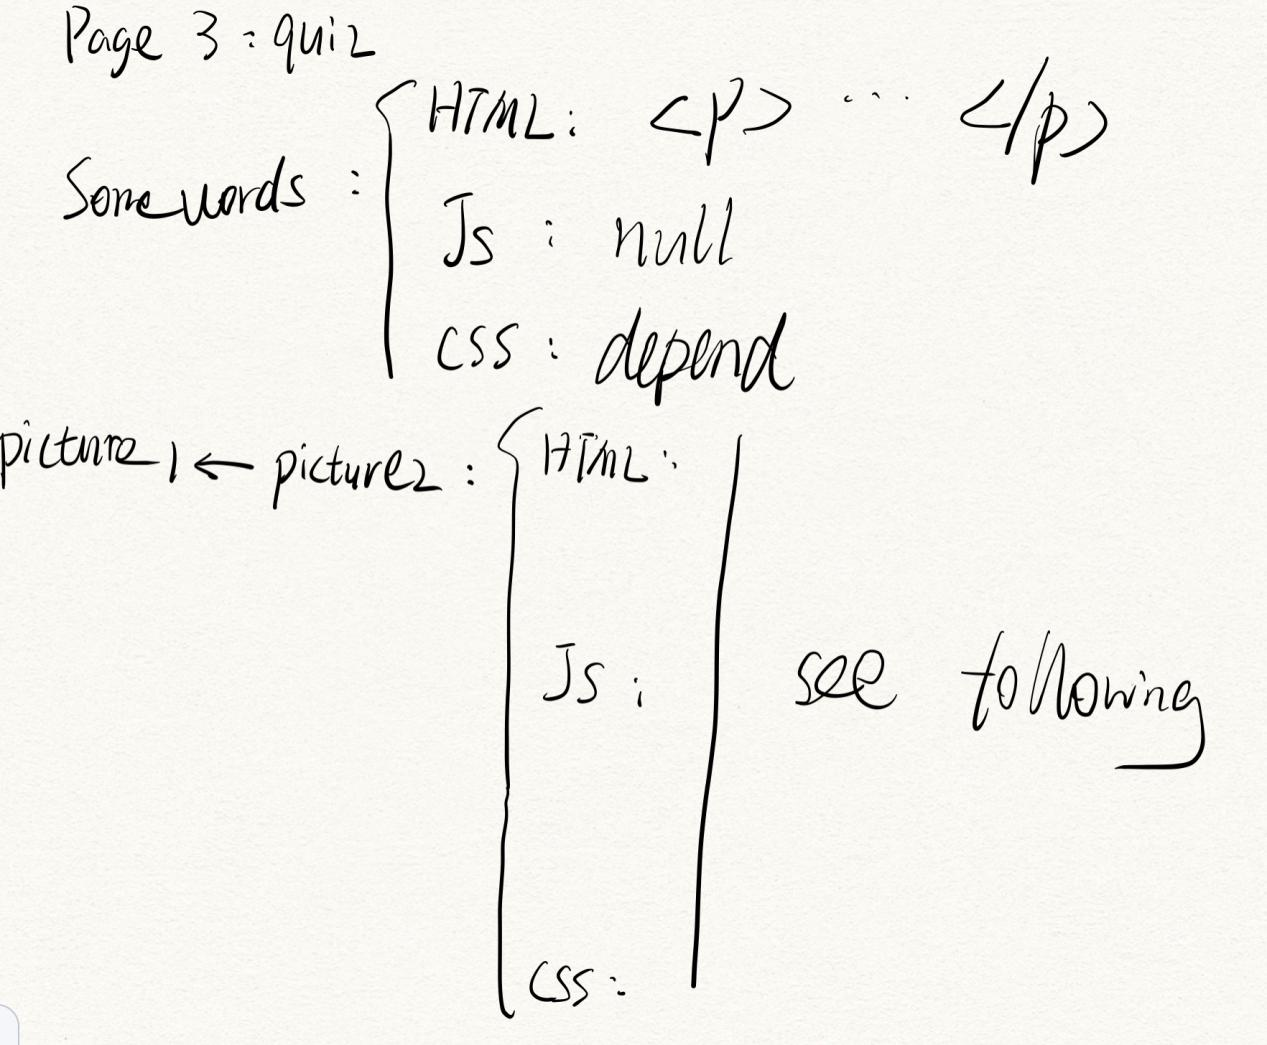 Page 3 : quiz
Some words :
HTML : <p> ... </p>
Js : null
css : depend
picture 1 ← picture2 :
HTML :
Js :
see following
css :